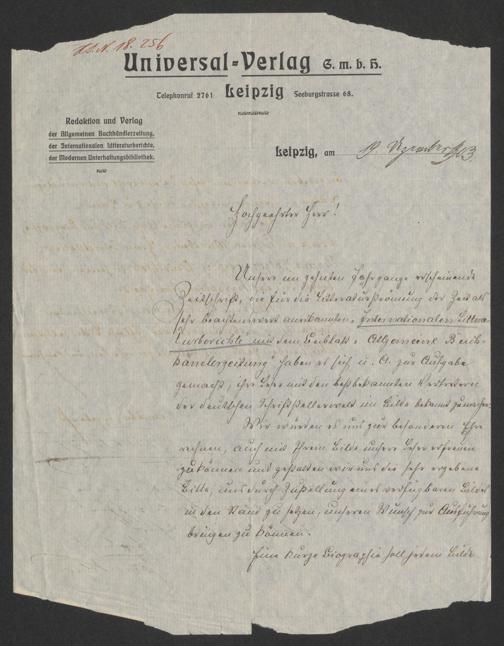 I.N. 18.256
Universal-Verlag G. m. b. H.
Telephonruf 2761 Leipzig Seeburgstrasse 68.
Redaktion und Verlag
der Allgemeinen Buchhändlerzeitung,
der Internationalen Litteraturberichte,
der Modernen Unterhaltungsbibliothek.
Leipzig, am 19. Dezember 1903
Hochgeehrter Herr!
Unsere im zehnten Jahrgange erscheinende
Zeitschrift, die für die Litteraturströmung der Zeit als
sehr beachtenswert anerkannten, Internationalen Littera-
turberichte mit dem Beiblatt „Allgemeine Buch-
händlerzeitung" haben es sich u. A. zur Aufgabe
gemacht, ihre Leser mit den bestbekannten Vertretern
der deutschen Schriftstellerwelt im Bilde bekannt zu machen.
Wir würden es uns zur besonderen Ehre
rechnen, auch mit Ihrem Bilde unsere Leser erfreuen
zu können und gestatten wir uns die sehr ergebene
Bitte, uns durch Zustellung eines verfügbaren Bildes
in den Stand zu setzen, unseren Wunsch zur Ausführung
bringen zu können.
Eine kurze Biographie soll jedem Bilde